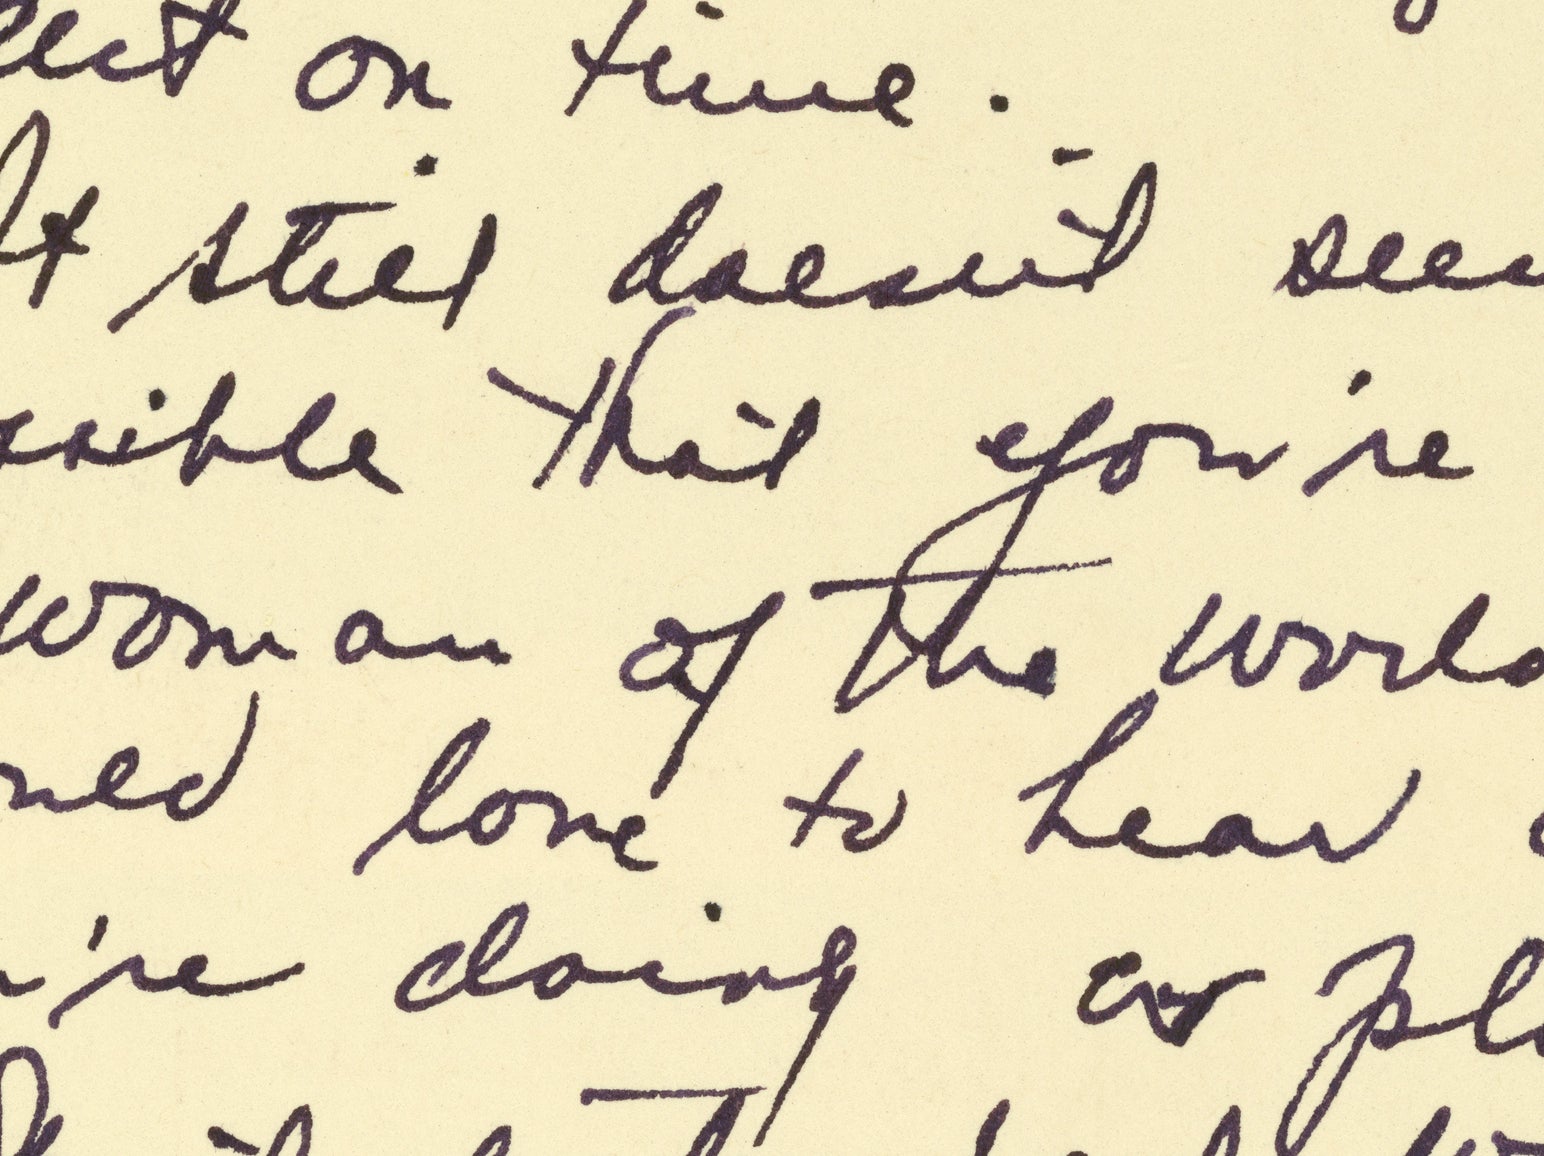 on time.
It still doesn't seem
ssible that you're
woman of the world
love to hear
're doing as pl